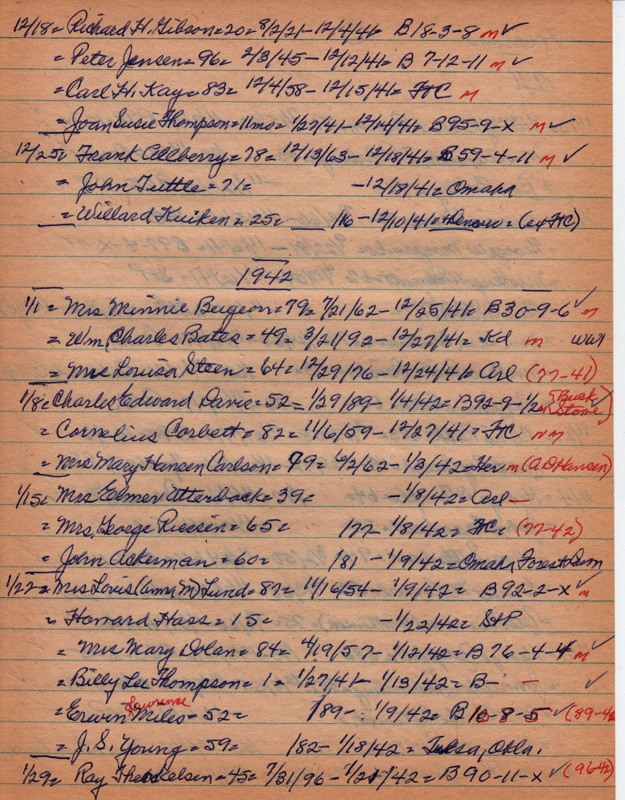 12/18= Richard H. Gibson=20= 8/2/21-12/4/41= B18-3-8 m ✓
= Peter Jensen=96= 2/3/45-12/12/41= B 7-12-11 m ✓
= Carl H. Kay=83= 12/4/58-12/15/41= FtC m
= Joan Susie Thompson=11mo= 1/27/41-12/14/41= B95-9-X m ✓
12/25= Frank Allberry=78= 12/13/63-12/18/41= B59-4-11 m ✓
= John Tuttle=71= -12/18/41= Omaha
= Willard Kuiken=25= /16-12/10/41= Denver= (ex FtC)
1942
1/1= Mrs Minnie Burgeon=79= 7/21/62-12/25/41= B30-9-6 ✓ m
= Wm, Charles Bates=49= 3/21/92-12/27/41= Kd m WW1
= Mrs Louisa Steen=64= 12/29/76-12/24/41= Arl (77-41)
1/8= Charles Edward Davie=52= 1/29/89-1/4/42= B92-9-1/2 m (Buck Stone) ✓
= Cornelius Corbett=82= 11/6/59-12/27/41= FtC nm
= Mrs Mary Hansen Carlson=79= 6/2/62-1/3/42= Her m (A D Hansen)
1/15= Mrs Elmer Utterback=39= -1/8/42= Arl -
= Mrs, George =65= /77-1/8/42= FtC (77-42)
= John Ackerman=60= /81-1/9/42= Omaha Forest Lawn
1/22= Mrs Louis (Anna M) Lund=87= 11/16/54-1/9/42= B92-2-X ✓ m
= Howard Hass=15= -1/22/42= StP
= Mrs Mary Dolan=84= 4/19/57-1/12/42= B76-4-4 m ✓
= Billy Lee Thompson=1= 1/27/41-1/13/42= B- - ✓
= Erwin Lawrence Niles=52= /89-1/9/42= B10-8-5 ✓ (89-42
= J. S. Young=59= /82-1/18/42= Tulsa, Okla.
1/29= Ray =45= 7/31/96-1/42= B90-11-X ✓ (96-42)